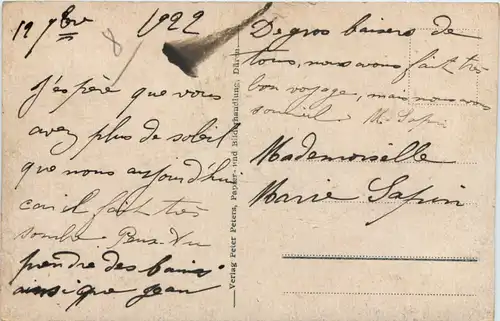 19 7bre 1922
8
J'espère que vous
avez plus de soleil
que nous aujourd'hui
car il fait très
sombre
prendre des bains
ainsi que Jean
De gros baisers de
tous, nous avons fait très
bon voyage, mais nous avons
sommeil M. Sapin
Mademoiselle
Marie Sapin
Verlag Peter Peters, Papier- und Buchhandlung, Düren